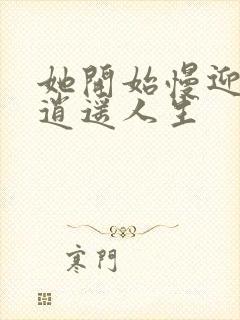 她開始慢迎
逍遥人生
寒門